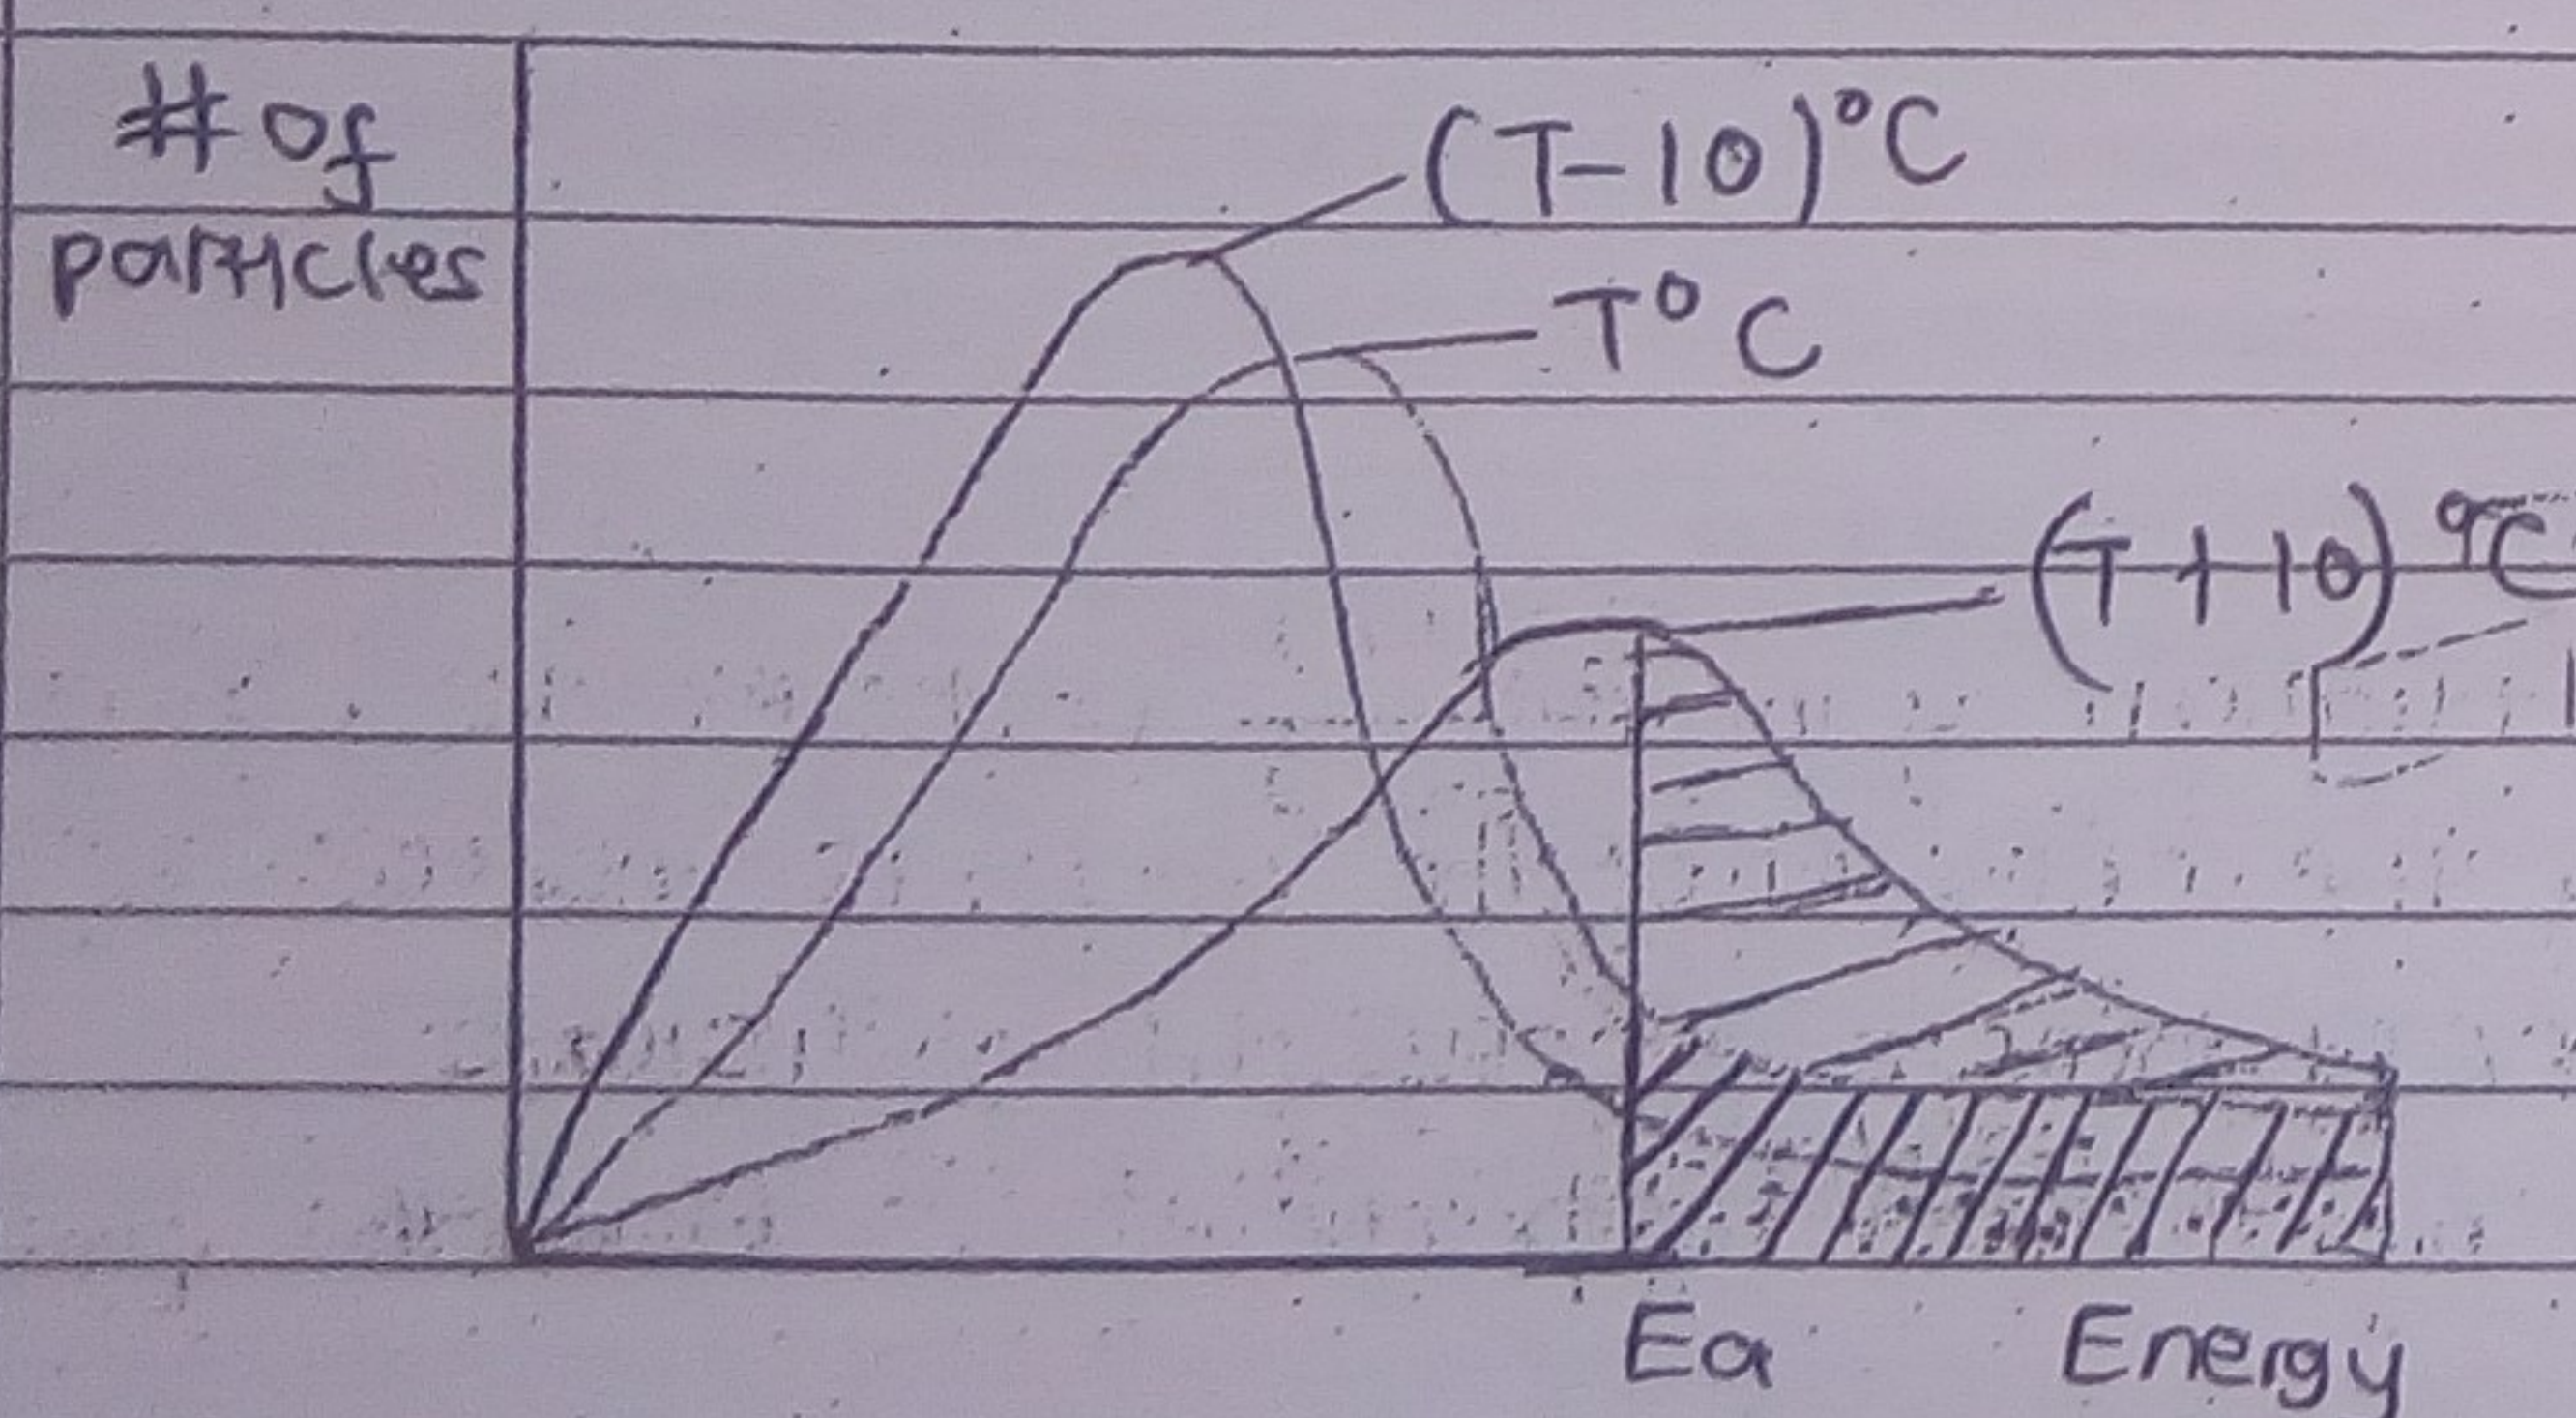 # of
particles
(T-10)°C
T°C
(T+10)°C
Ea
Energy